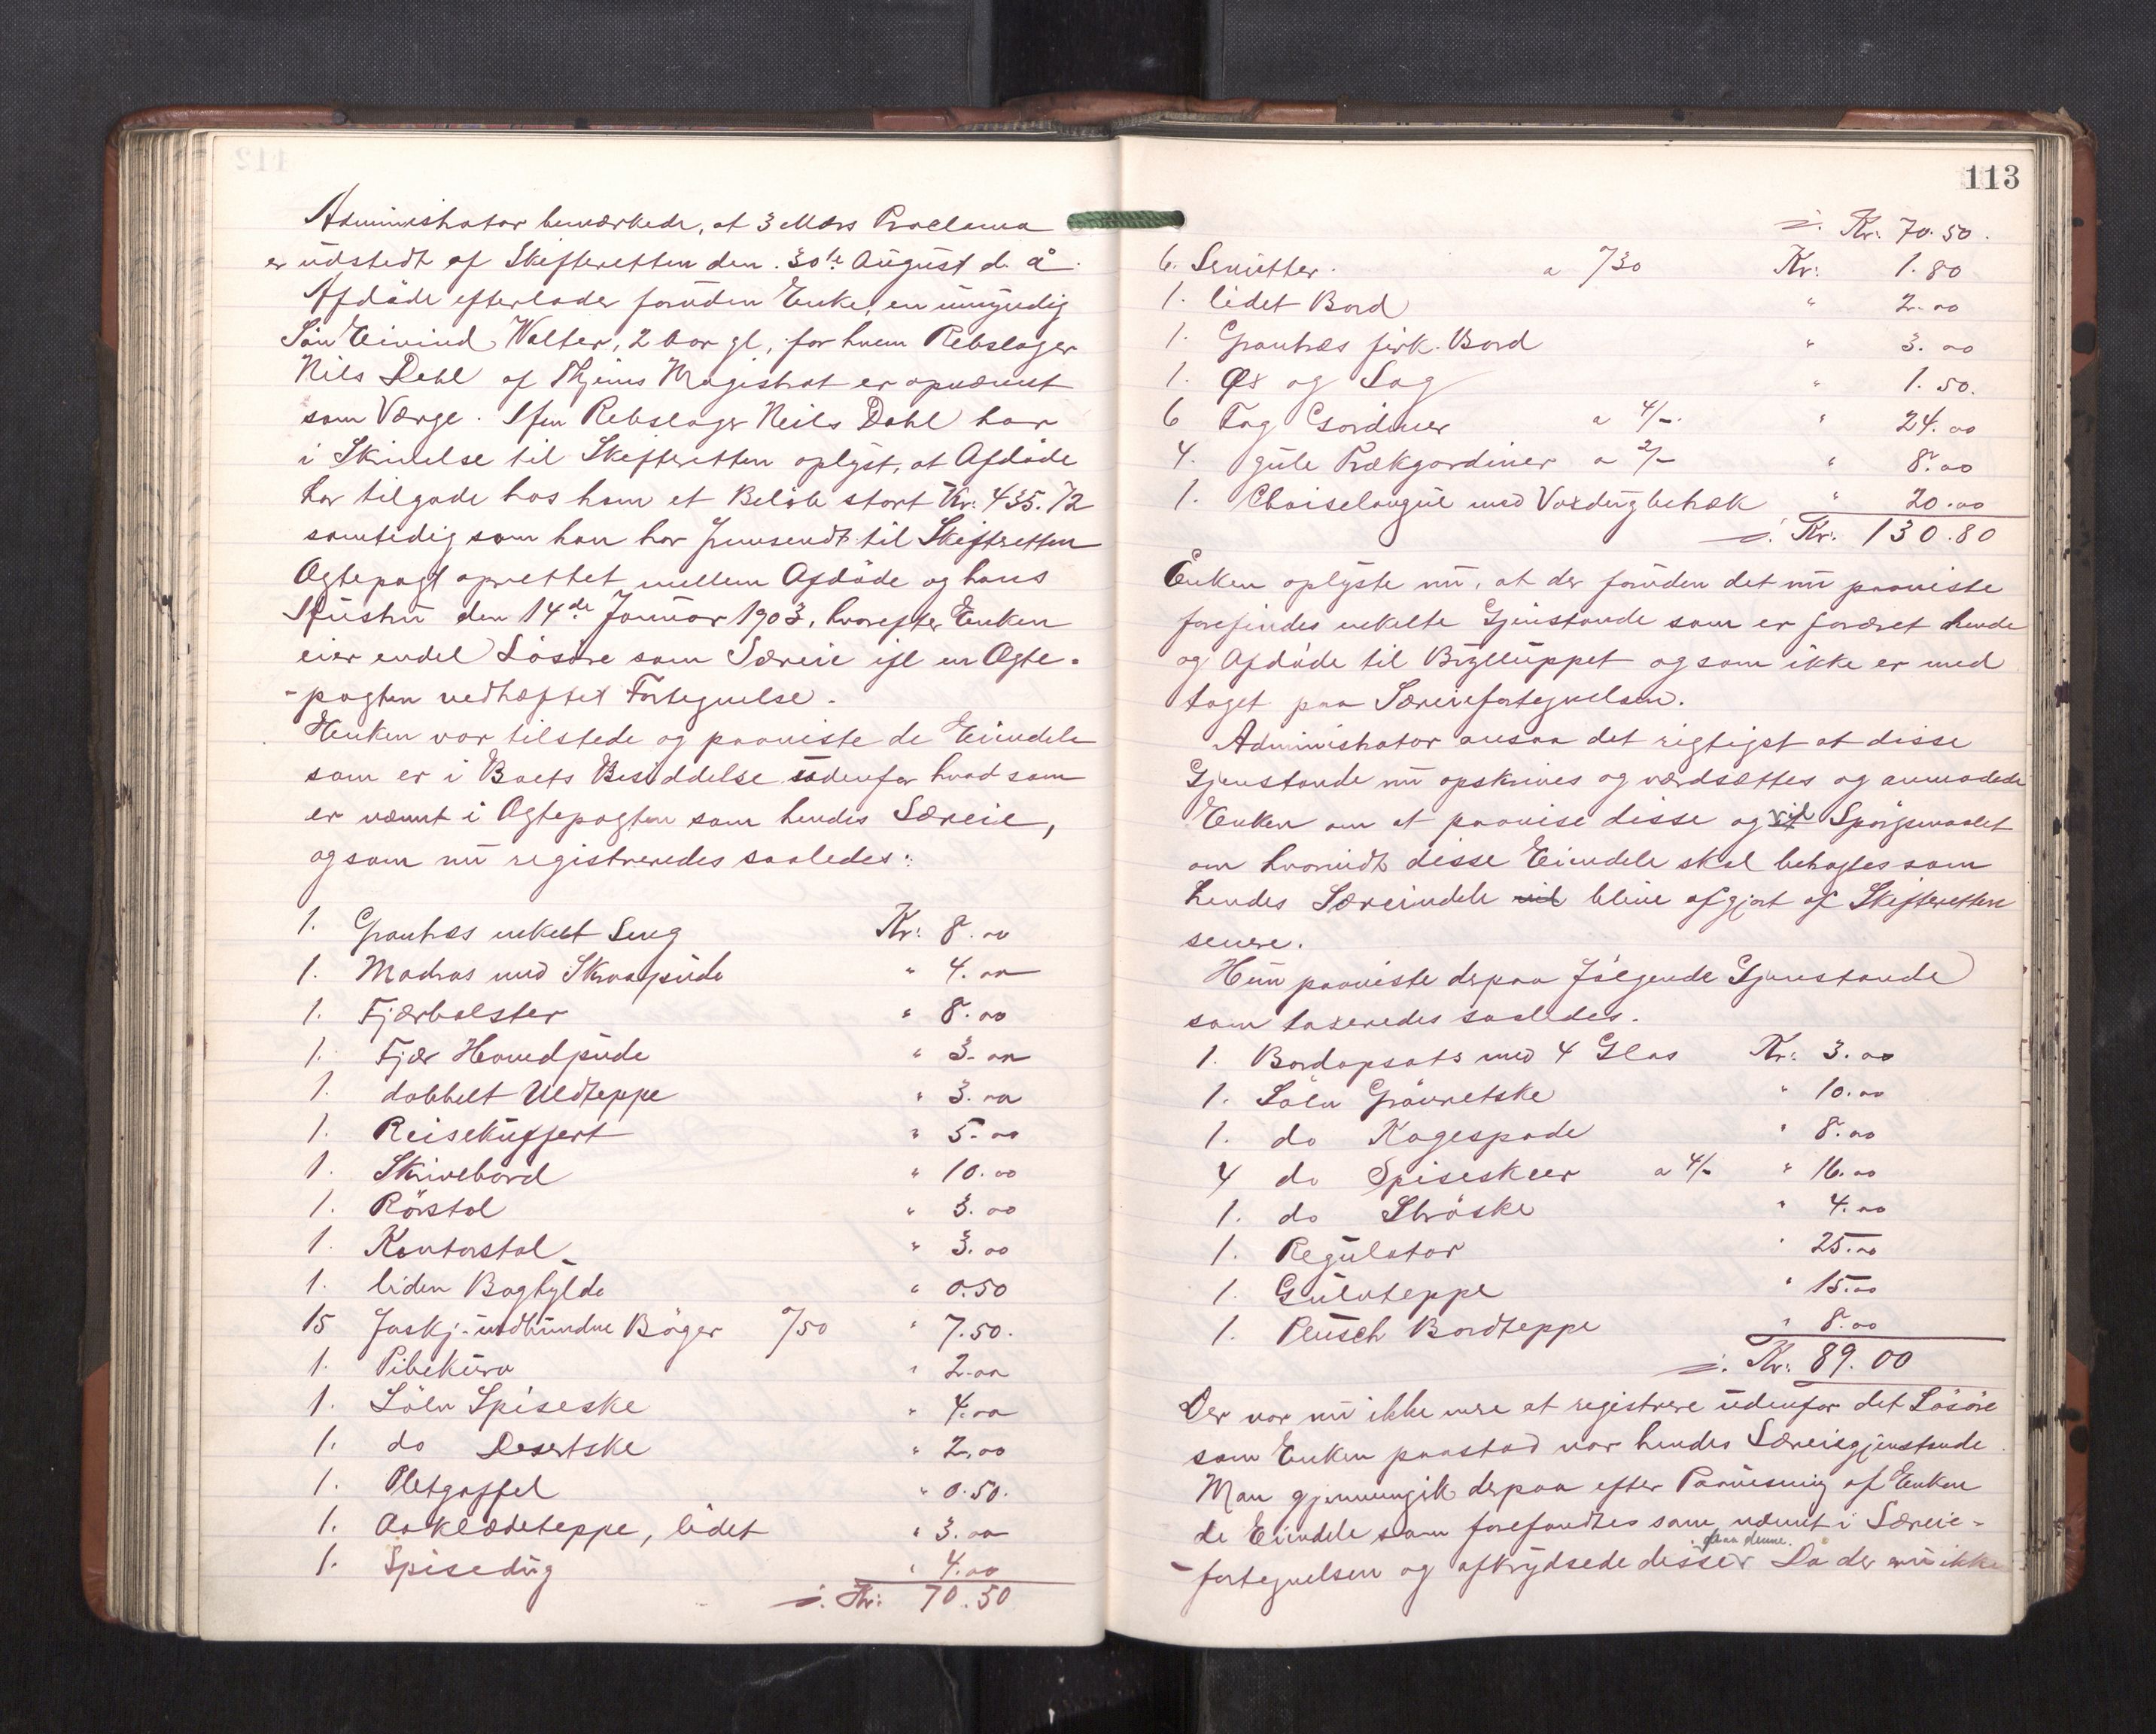 Administrator bemærkede, at 3 Mdrs Proclama
er udstedt af Skifteretten den 30te August d. å.
Afdøde efterlader foruden Enke, en umyndig
Søn Eivind Walter, 2 Aar gl, for hvem Rebslager
Nils Dahl af Thjems Magistrat er opnævnt
som Værge. Ifm Rebslager Neils Dahl har
i Skrivelse til Skifteretten oplyst, at Afdøde
har tilgode hos ham et Beløb stort Kr: 435.72
samtidig som han har fremsendt til Skifteretten
Ægtepagt oprettet mellem Afdøde og hans
Hustru den 14de Januar 1903, hvorefter Enken
eier endel Løsøre som Særeie ifl en Ægte-
-pagten vedhæftet Fortegnelse.
Enken var tilstede og paaviste de Eiendele
som er i Boets Besiddelse udenfor hvad som
er nævnt i Ægtepagten som hendes Særeie,
og som nu registreredes saaledes:
1. Grantræs enkelt Seng Kr: 8.00
1. Madras med Skraapude " 4.00
1. Fjærbolster " 8.00
1. Fjær Hovedpude " 3.00
1. dobbelt Uldteppe " 3.00
1. Reisekuffert " 5.00
1. Skrivebord " 10.00
1. Rørstol " 3.00
1. Kontorstol " 3.00
1. liden Boghylde " 0.50
15 forskj. indbundne Bøger a/50 " 7.50.
1. Pibekurv " 2.00
1. Sølv Spiseske " 4.00
1. do Desertske " 2.00
1. Pletgaffel " 0.50.
1. Aaklædeteppe, lidet " 3.00
1. Spisedug " 4.00
i. Kr: 70.50
113
i. Kr: 70.50.
6. Servitter. a /30 Kr: 1.80
1. lidet Bord " 2.00
1. Grantræs firk. Bord " 3.00
1. Øx og Sag " 1.50.
6 Fag Gardiner a 4/- " 24.00
4. gule Trækgardiner a 2/- " 8.00
1. Chaiselongue med Voxdugbetræk " 20.00
i. Kr: 130.80
Enken oplyste nu, at der foruden det nu paaviste
forefindes enkelte Gjenstande som er foræret hende
og Afdøde til Brylluppet og som ikke er med
taget paa Særeiefortegnelsen.
Administrator ansaa det rigtigst at disse
Gjenstande nu opskrives og værdsættes og anmodede
Enken om at paavise disse og vil Spørgsmaalet
om hvorvidt disse Eiendele skal behagtes som
hendes Særeindele vil blive afgjort af Skifteretten
senere.
Hun paaviste derpaa følgende Gjenstande
som taxeredes saaledes.
1. Bordopsats med 4 Glas Kr: 3.00
1. Sølv Grøvretske " 10.00
1. do Kagespade " 8.00
4 do Spiseskeer a 4/- " 16.00
1. do Strøske " 4.00
1. Regulator " 25.00
1. Gulvteppe " 15.00
1. Plusch Bordteppe " 8.00
i. Kr: 89.00
Der var nu ikke mere at registrere udenfor det Løsøre
som Enken paastod var hendes Særeiegjenstande.
Man gjennemgik derpaa efter Paavisning af Enken
de Eiendele som forefandtes som nævnt i Særeie-
paa denne.
-fortegnelsen og afkrydsede disse Da der nu ikke